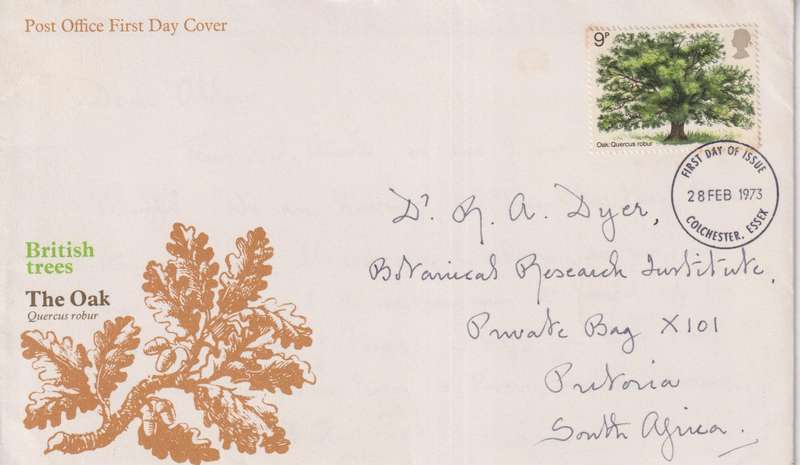 Post Office First Day Cover
9P
Oak: Quercus robur
FIRST DAY OF ISSUE
28 FEB 1973
COLCHESTER, ESSEX
Dr. R. A. Dyer,
Botanical Research Institute,
Private Bag X101
Pretoria
South Africa.
British
trees
The Oak
Quercus robur